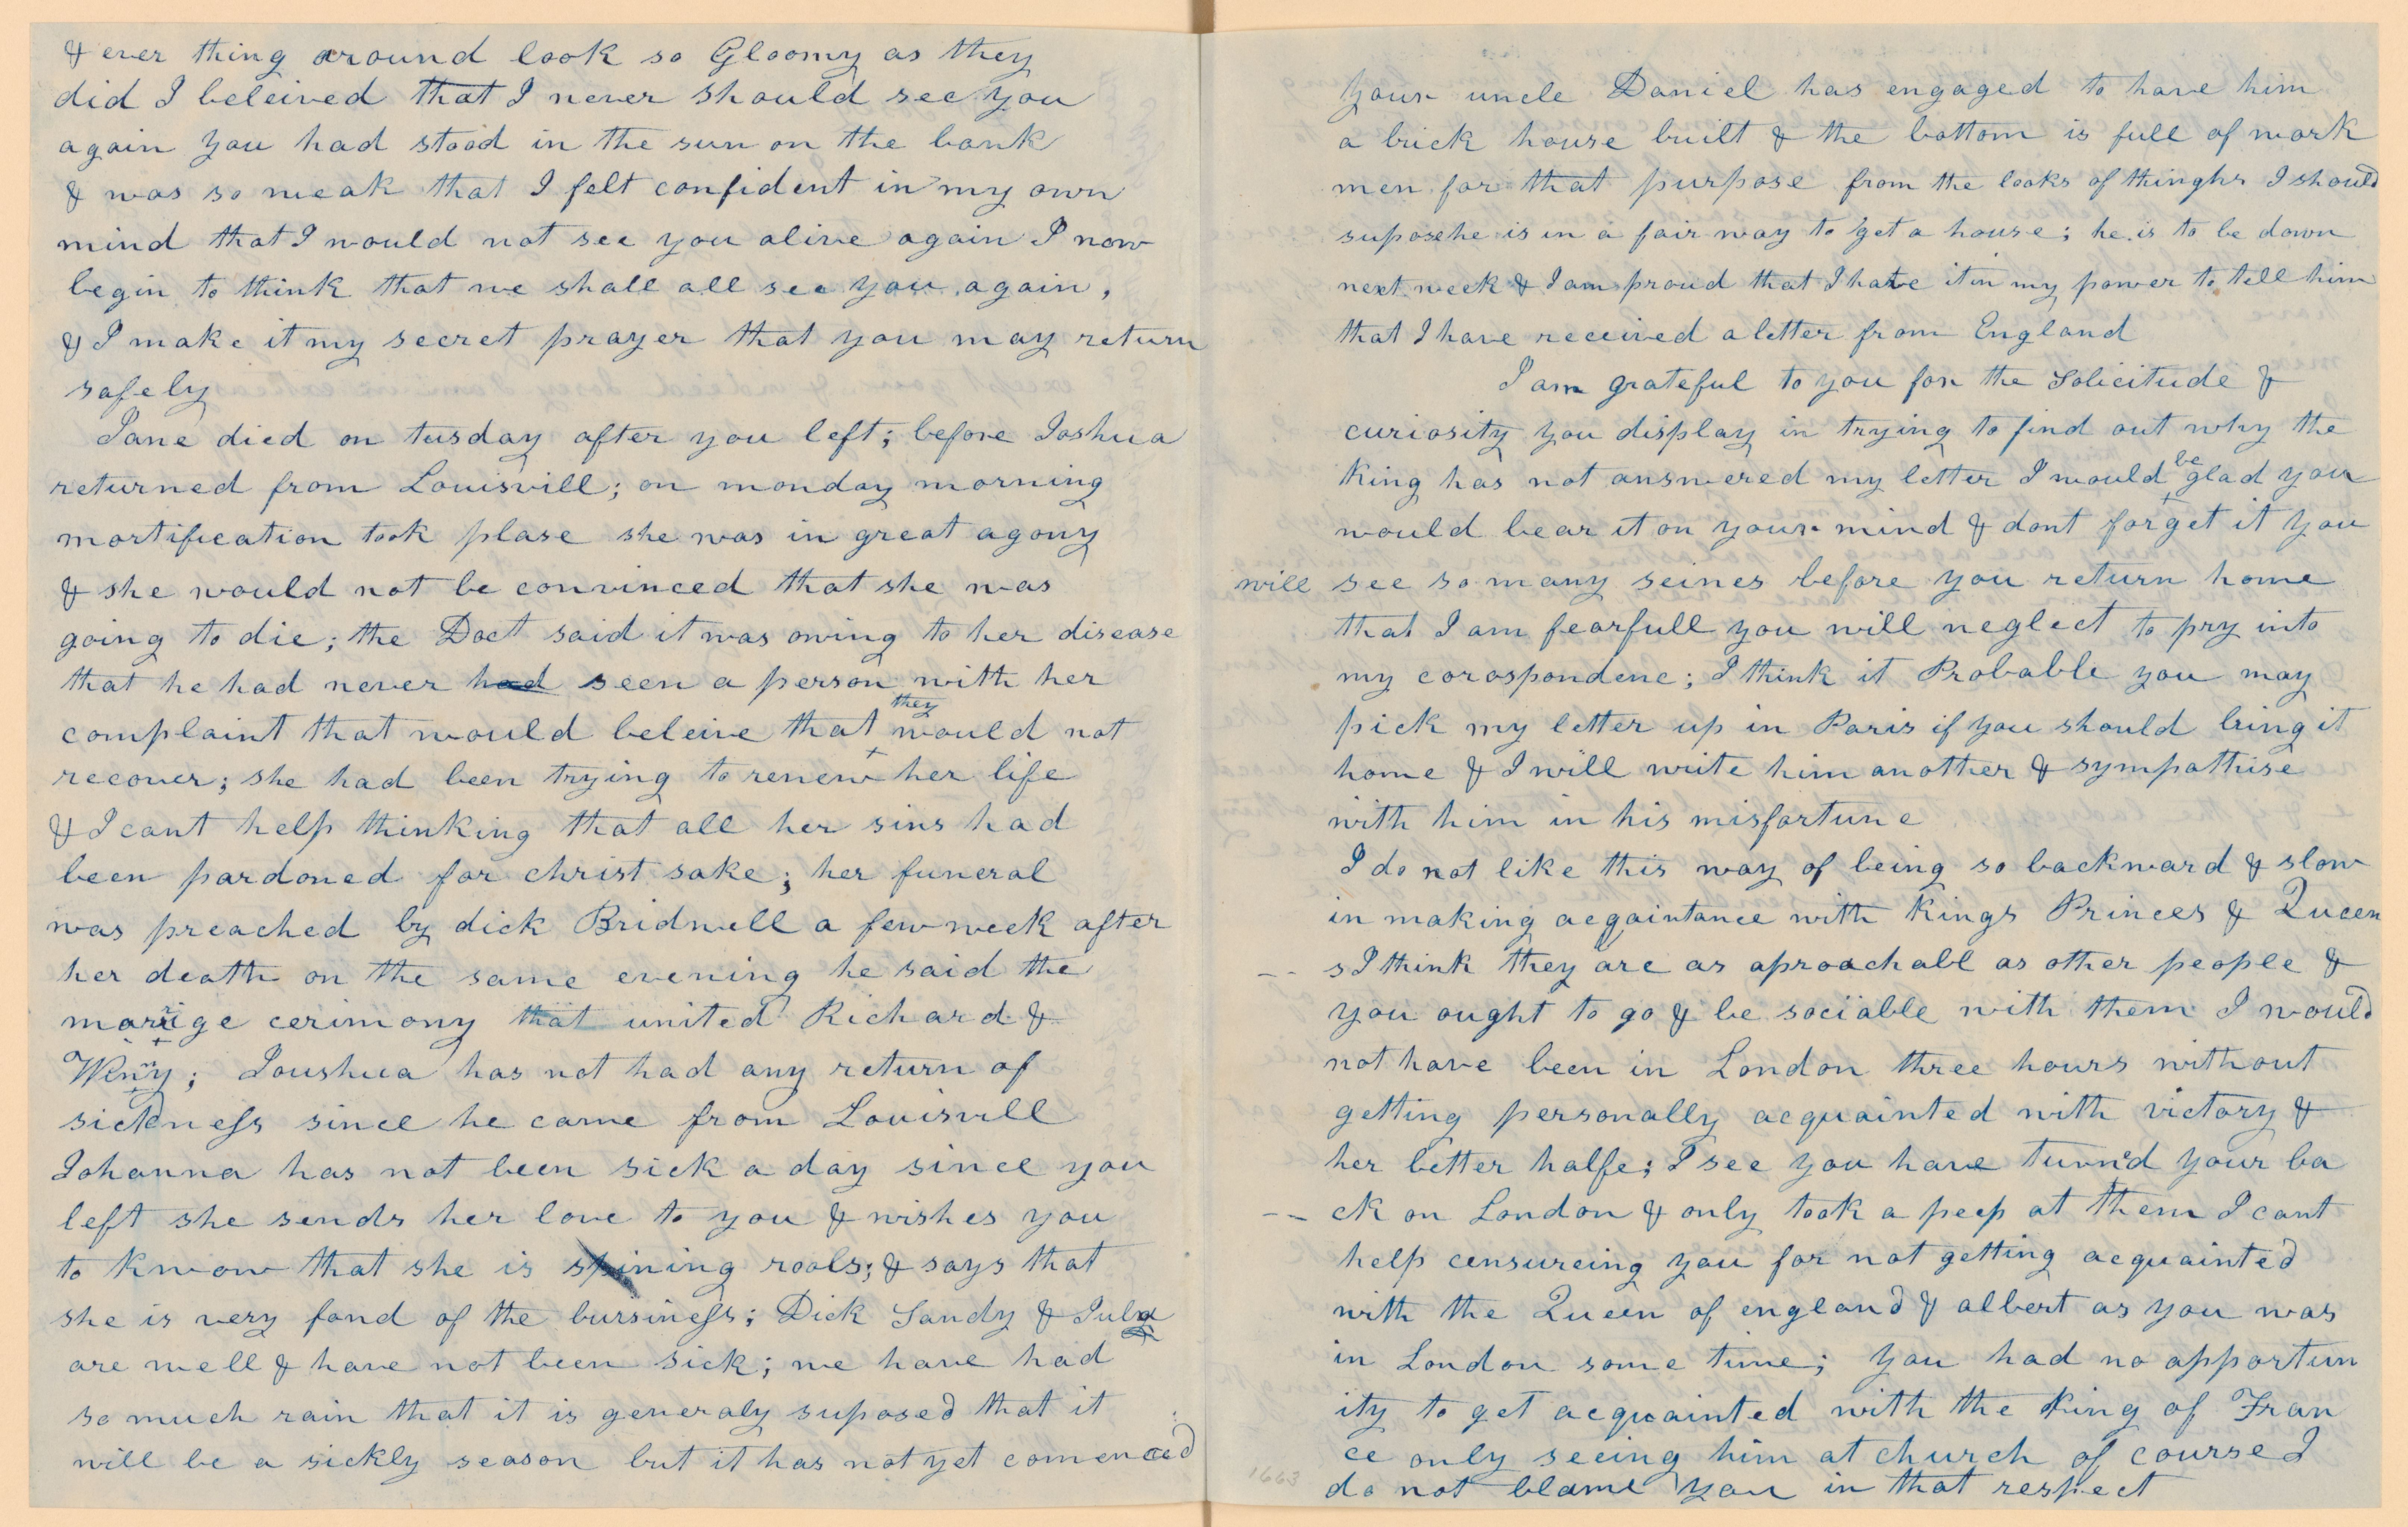 & ever thing around look so Gloomy as they
did I beleived that I never should see you
again you had stood in the sun on the bank
& was so weak that I felt confident in my own
mind that I would not see you alive again I now
begin to think that we shall all see you again,
& I make it my secret prayer that you may return
safely
Jane died on tusday after you left; before Joshua
returned from Louisvill; on monday morning
mortification took plase she was in great agony
& she would not be convinced that she was
going to die; the Doct said it was owing to her disease
that he had never had seen a person with her
complaint that would beleive that they would not
recover; she had been trying to renew her life
& I cant help thinking that all her sins had
been pardoned for christ sake; her funeral
was preached by dick Bridwell a few week after
her death on the same evening he said the
marige cerimony that united Richard &
Winy; Joushua has not had any return of
sickness since he came from Louisvill
Johanna has not been sick a day since you
left she sends her love to you & wishes you
to know that she is spining rools; & says that
she is very fond of the bursiness; Dick Sandy &
are well & have not been sick; we have had
so much rain that it is generaly suposed that it
will be a sickly season but it has not yet comenced
Your uncle Daniel has engaged to have him
a brick house built & the bottom is full of work
men for that purpose from the looks of thinghs I should
supose he is in a fair way to get a house; he is to be down
next week & I am proud that I have it in my power to tell him
that I have received a letter from England
I am grateful to you for the Solicitude &
curiosity you display in trying to find out why the
King has not answered my letter I would be glad you
would bear it on your mind & dont forget it you
will see so many seines before you return home
that I am fearfull you will neglect to pry into
my corospondenc; I think it Probable you may
pick my letter up in Paris if you should bring it
home & I will write him another & sympathise
with him in his misfortune
I do not like this way of being so backward & slow
in making acqaintance with Kings Princes & Queen
-- s I think they are as aproachabl as other people &
you ought to go & be sociable with them I would
not have been in London three hours without
getting personally acquainted with victory &
her better halfe; I see you have turn'd your ba
-- ck on London & only took a peep at them I cant
help censureing you for not getting acquainted
with the Queen of england & albert as you was
in London some time; you had no apportun
ity to get acquainted with the King of Fran
ce only seeing him at church of course I
do not blame you in that respect
1663